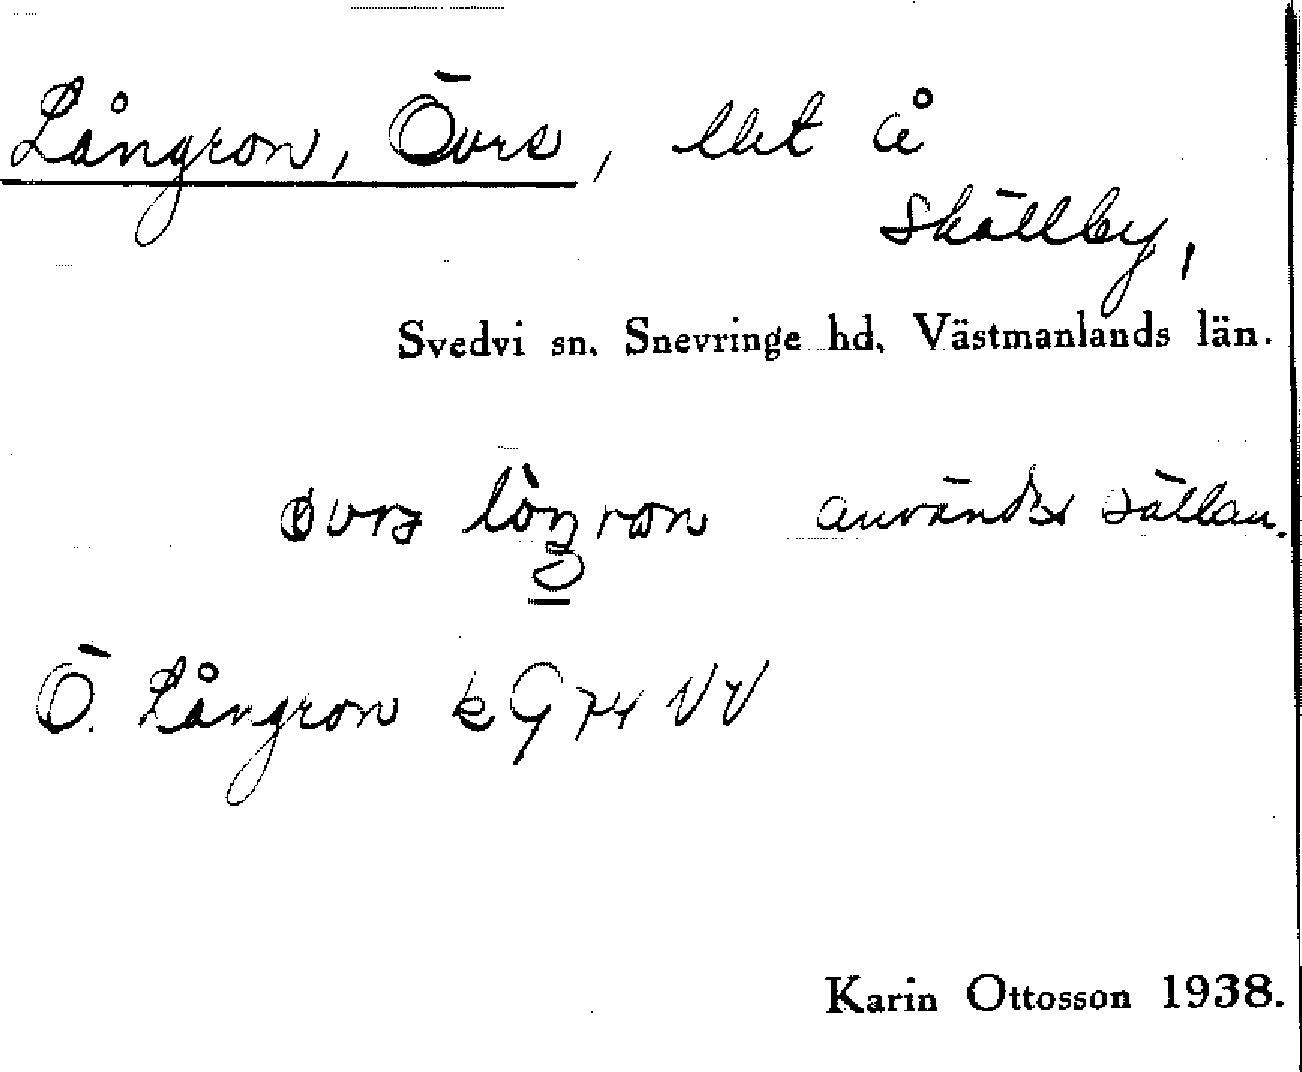 Långron, Övre, lht å
Skällby,
Svedvi sn. Snevringe hd. Västmanlands län.
användes sällan.
Ö. Långron k G 74 VV
Karin Ottosson 1938.